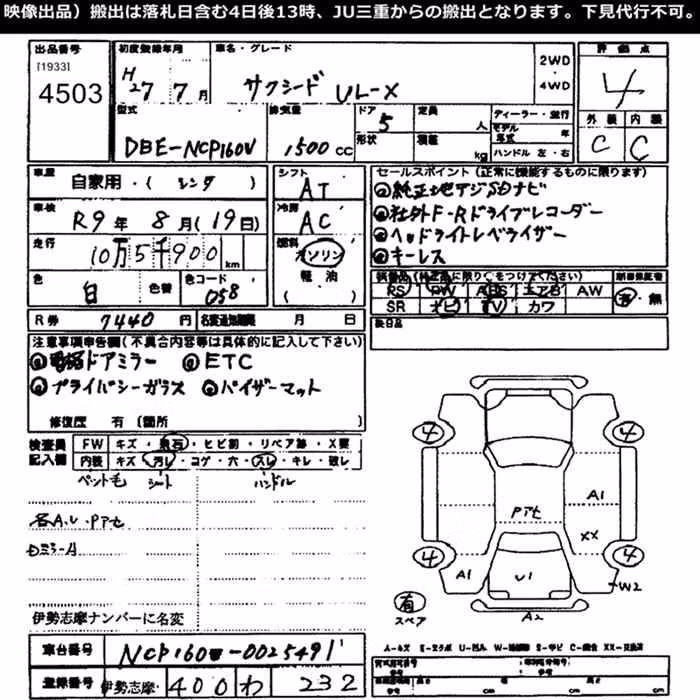 映像出品）搬出は落札日含む4日後13時、JU三重からの搬出となります。下見代行不可。
出品番号 初度登録年月 車名・グレード 評価点
[1933] 4503 H27 7月 サクシード UL-X 2WD・4WD 4
型式 排気量 ドア 定員 ディーラー・並行
DBE-NCP160V 1500cc 5 形状 人 積載 kg モデル年式 年 ハンドル 左・右
外装 内装
C C
車歴 自家用・(レンタ) シフト AT
車検 R9年 8月(19日) 冷房 AC
走行 10万5千900km 燃料 ガソリン 軽油 ( )
色 白 色替 色コード 058
R券 7440円 名変通知期限 月 日
セールスポイント (正常に機能するものに限ります)
◎純正地デジSDナビ
◎社外F-Rドライブレコーダー
◎ヘッドライトレベライザー
◎キーレス
装備品(純正品に限り○をつけてください) 新車保証書
RS PW ABS エアB AW 有・無
SR ナビ TV カワ
後日品
注意事項申告欄(不具合内容等は具体的に記入して下さい)
◎電格ドアミラー ◎ETC
◎プライバシーガラス ◎バイザーマット
修復歴 有 (箇所 )
検査員記入欄 FW キズ・飛石・ヒビ割・リペア跡・X要
内装 キズ・汚レ・コゲ・穴・スレ・キレ・破レ
ペット毛 シート ハンドル
各A.U.Pアセ
DミラーA
伊勢志摩ナンバーに名変
4 4
Pアセ A1
XX
4 4
A1 U1 W2
有 スペア A2
A-キズ E-エクボ U-凹ム W-補修跡 S-サビ C-腐食 XX-交換済
車台番号 NCP160V-0025491
登録番号 伊勢志摩 400 わ 232
cm cm cm